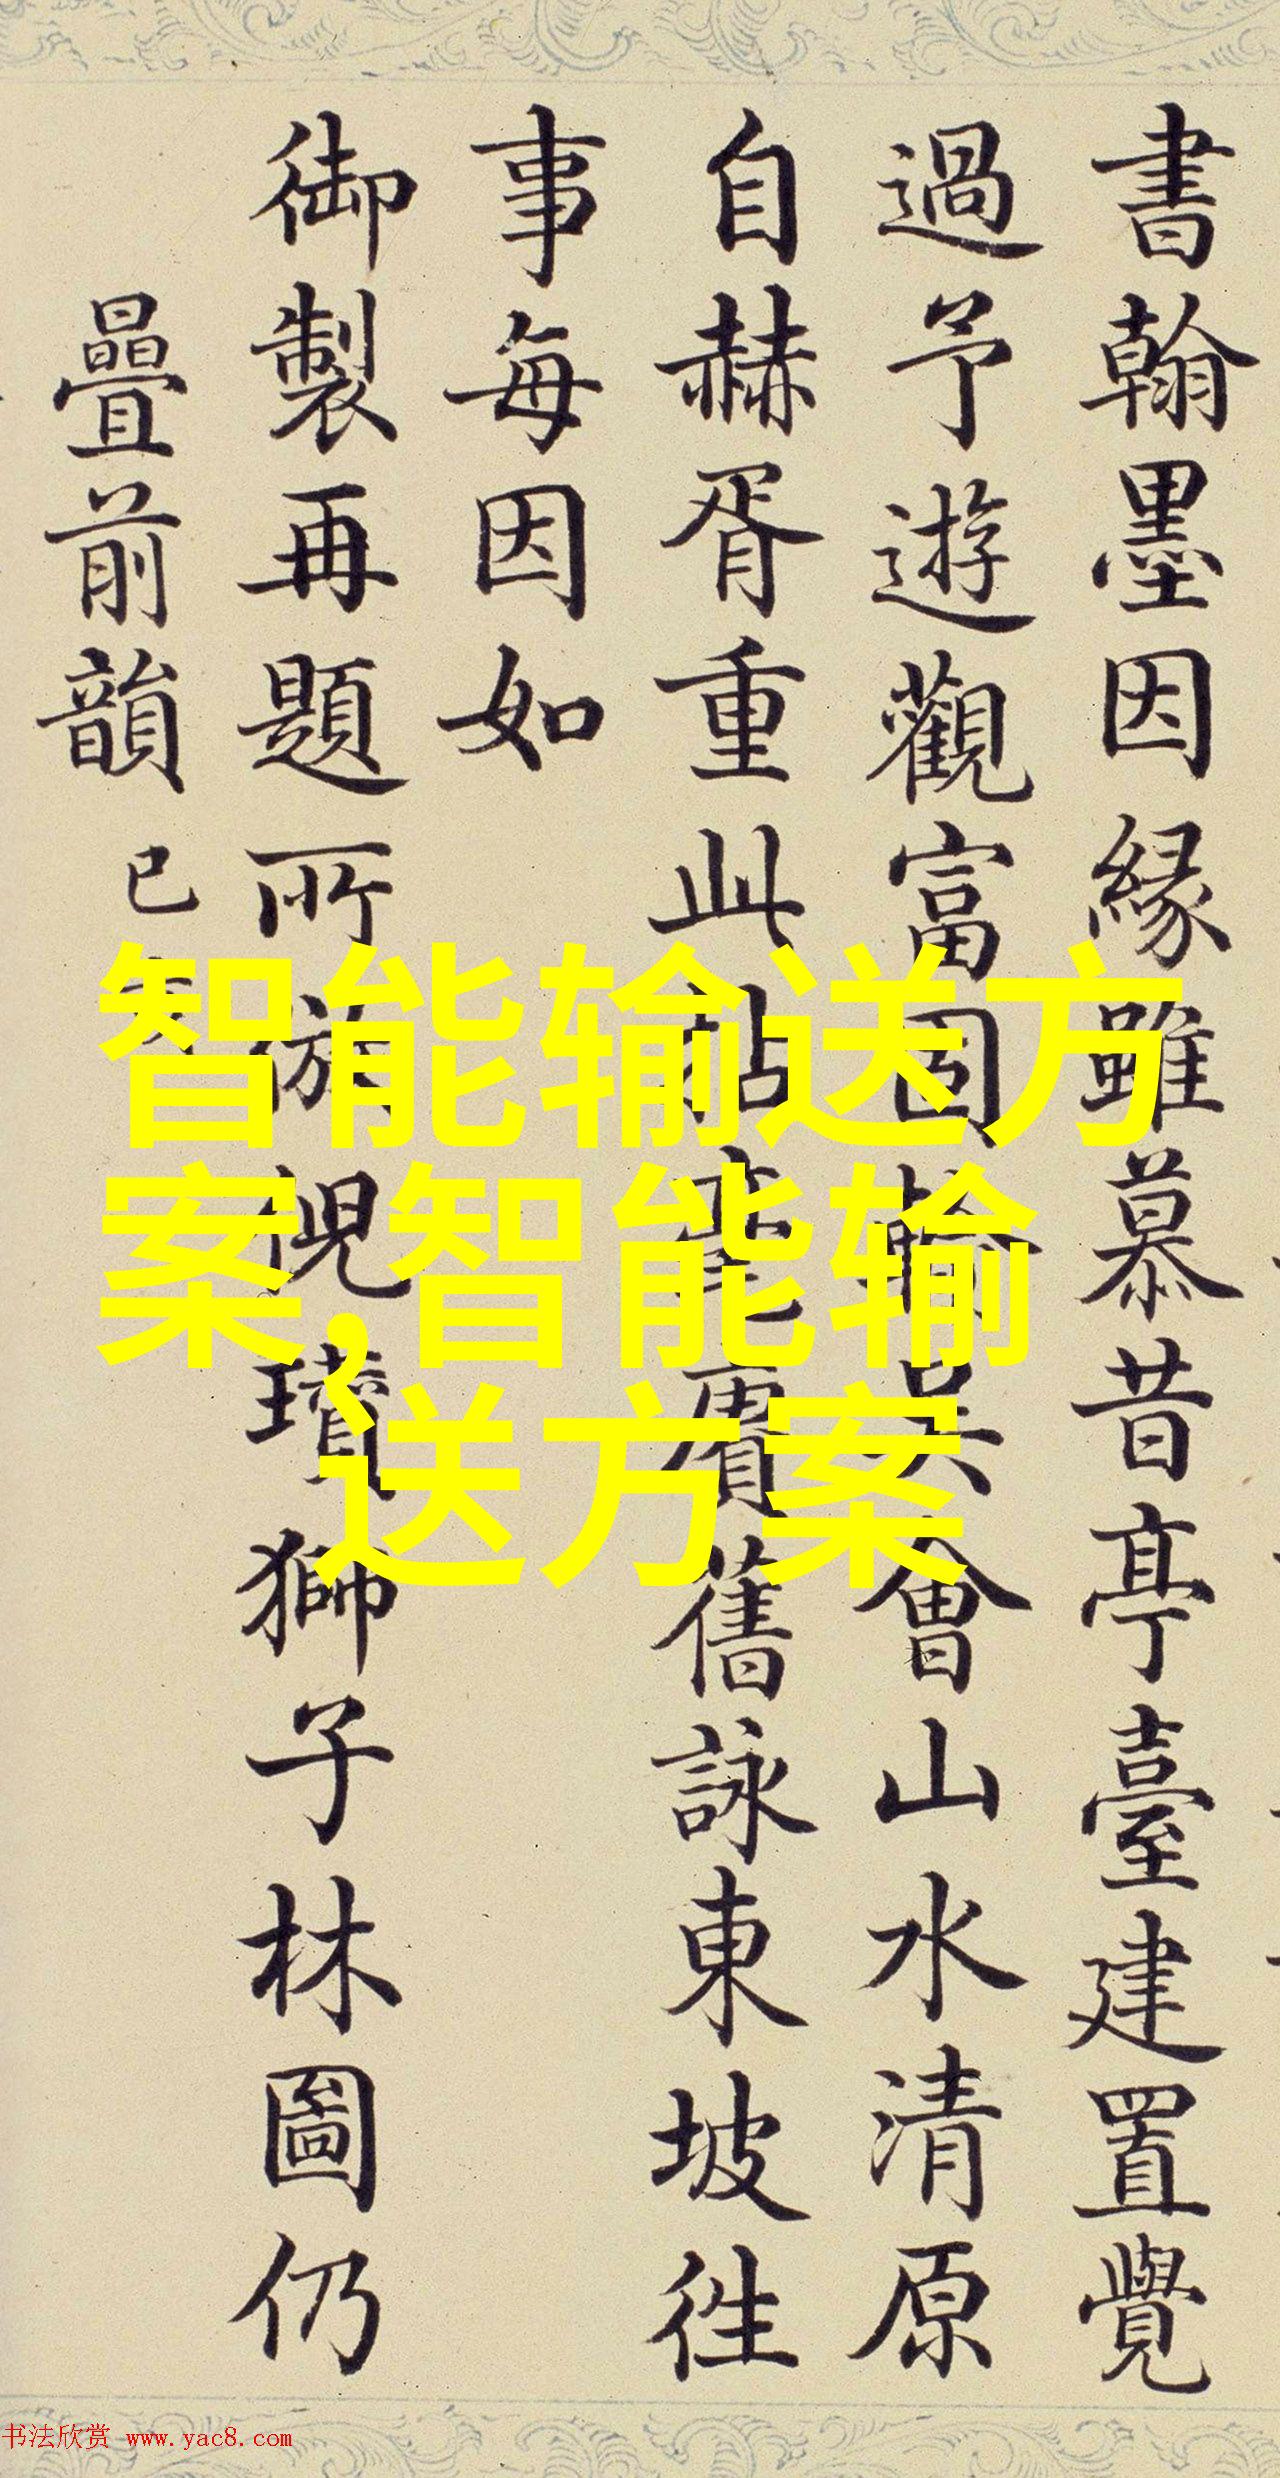 書翰墨因緣雖慕昔亭臺建置覺
過予遊觀富固輸吳會山水清原
自赫胥重此拈毫賡舊詠東坡徃
事每因如
御製再題所倣倪瓚獅子林圖仍
疊前韻 已
智能输送方
案,智能输
送方案
书法欣赏 www.yac8.com